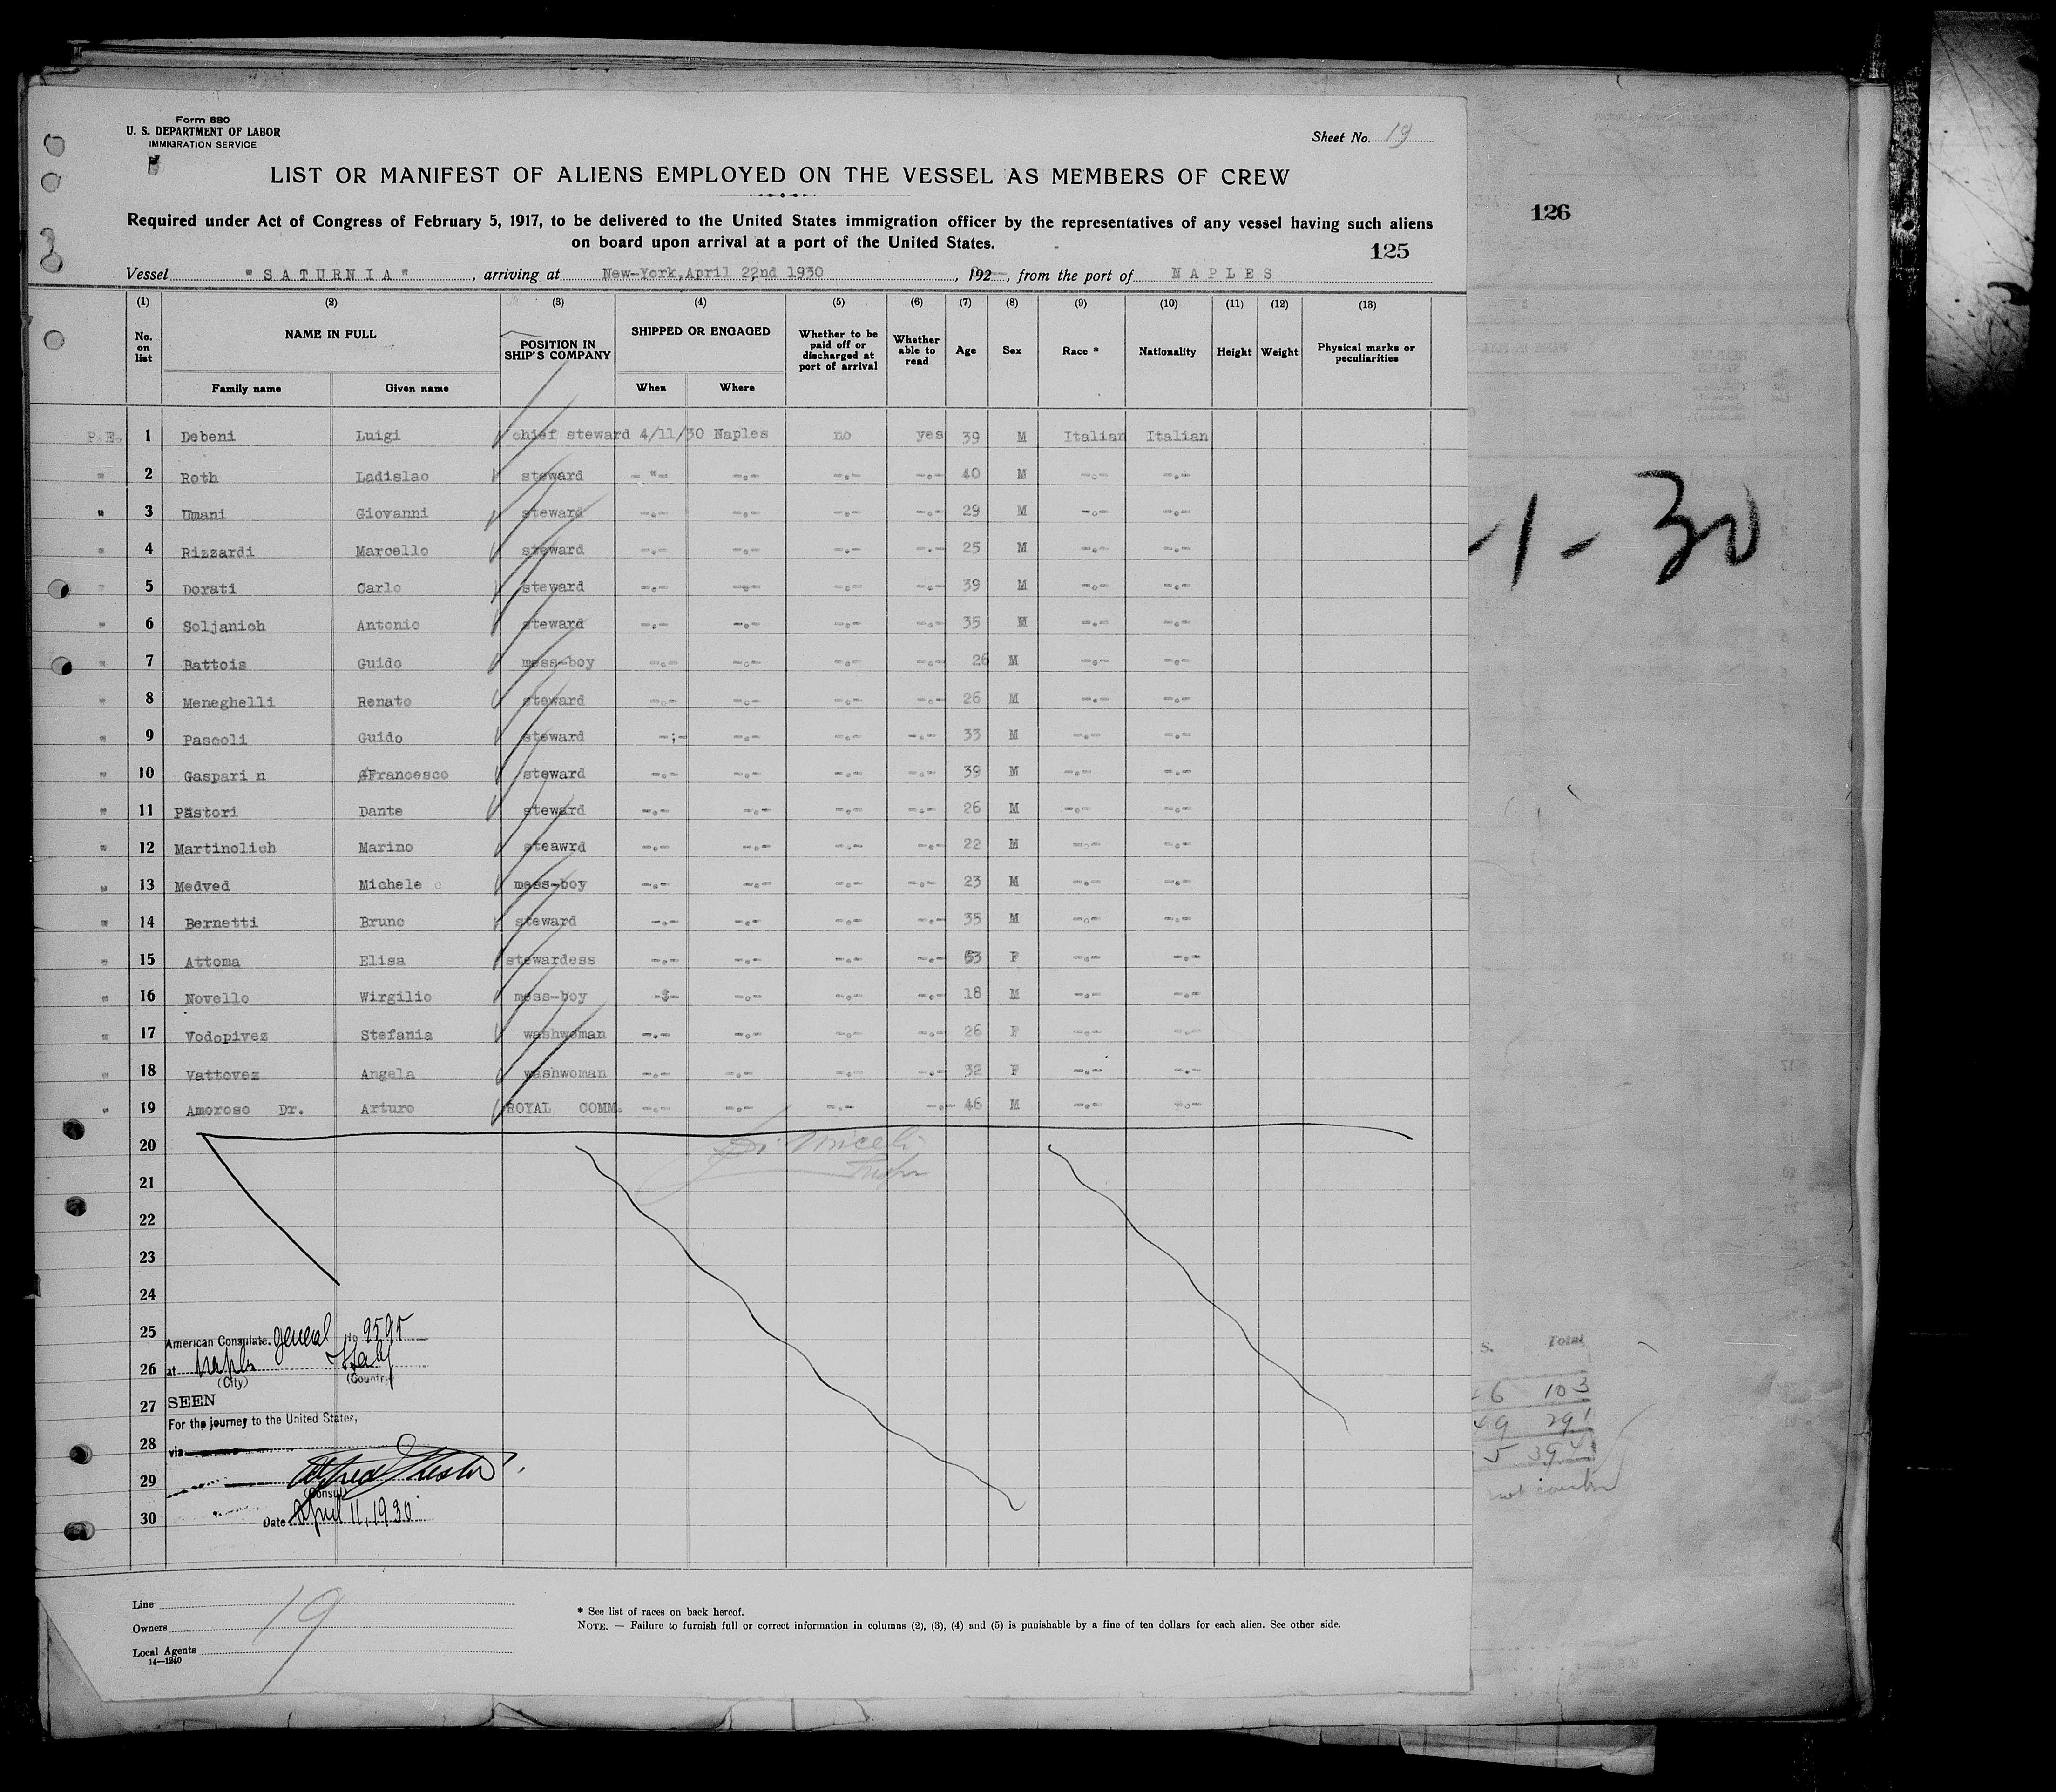 Form 680
U. S. DEPARTMENT OF LABOR
IMMIGRATION SERVICE
Sheet No. 19
LIST OR MANIFEST OF ALIENS EMPLOYED ON THE VESSEL AS MEMBERS OF CREW
Required under Act of Congress of February 5, 1917, to be delivered to the United States immigration officer by the representatives of any vessel having such aliens
on board upon arrival at a port of the United States.
125
126
Vessel "SATURNIA", arriving at New-York, April 22nd 1930, 192, from the port of NAPLES
(1) (2) (3) (4) (5) (6) (7) (8) (9) (10) (11) (12) (13)
No. on list NAME IN FULL POSITION IN SHIP'S COMPANY SHIPPED OR ENGAGED Whether to be paid off or discharged at port of arrival Whether able to read Age Sex Race * Nationality Height Weight Physical marks or peculiarities
Family name Given name When Where
P.E. 1 Debeni Luigi chief steward 4/11/30 Naples no yes 39 M Italian Italian
" 2 Roth Ladislao steward -"- -.- -.- -.- 40 M -.- -.-
" 3 Umani Giovanni steward -.- -.- -.- -.- 29 M -.- -.-
" 4 Rizzardi Marcello steward -.- -.- -.- -.- 25 M -.- -.-
" 5 Dorati Carlo steward -.- -.- -.- -.- 39 M -.- -.-
" 6 Soljanich Antonio steward -.- -.- -.- -.- 35 M -.- -.-
" 7 Battois Guido mess-boy -.- -.- -.- -.- 26 M -.- -.-
" 8 Meneghelli Renato steward -.- -.- -.- -.- 26 M -.- -.-
" 9 Pascoli Guido steward -;- -.- -.- -.- 33 M -.- -.-
" 10 Gaspari n Francesco steward -.- -.- -.- -.- 39 M -.- -.-
" 11 Pastori Dante steward -.- -.- -.- -.- 26 M -.- -.-
" 12 Martinolich Marino steawrd -.- -.- -.- -.- 22 M -.- -.-
" 13 Medved Michele c mess-boy -.- -.- -.- -.- 23 M -.- -.-
" 14 Bernetti Bruno steward -.- -.- -.- -.- 35 M -.- -.-
" 15 Attoma Elisa stewardess -.- -.- -.- -.- 53 F -.- -.-
" 16 Novello Wirgilio mess-boy -$- -.- -.- -.- 18 M -.- -.-
" 17 Vodopivez Stefania washwoman -.- -.- -.- -.- 26 F -.- -.-
" 18 Vattovez Angela washwoman -.- -.- -.- -.- 32 F -.- -.-
" 19 Amoroso Dr. Arturo ROYAL COMM. -.- -.- -.- -.- 46 M -.- -.-
20
21
22
23
24
25
26
27
28
29
30
American Consulate. General No 2595
at Naples Italy
(City) (Country)
SEEN
For the journey to the United States,
via
(Consul)
Date April 11, 1930
Line
Owners
Local Agents
14—1240
19
* See list of races on back hereof.
NOTE. — Failure to furnish full or correct information in columns (2), (3), (4) and (5) is punishable by a fine of ten dollars for each alien. See other side.
-1-30
S. Total
6 103
49 291
5 394